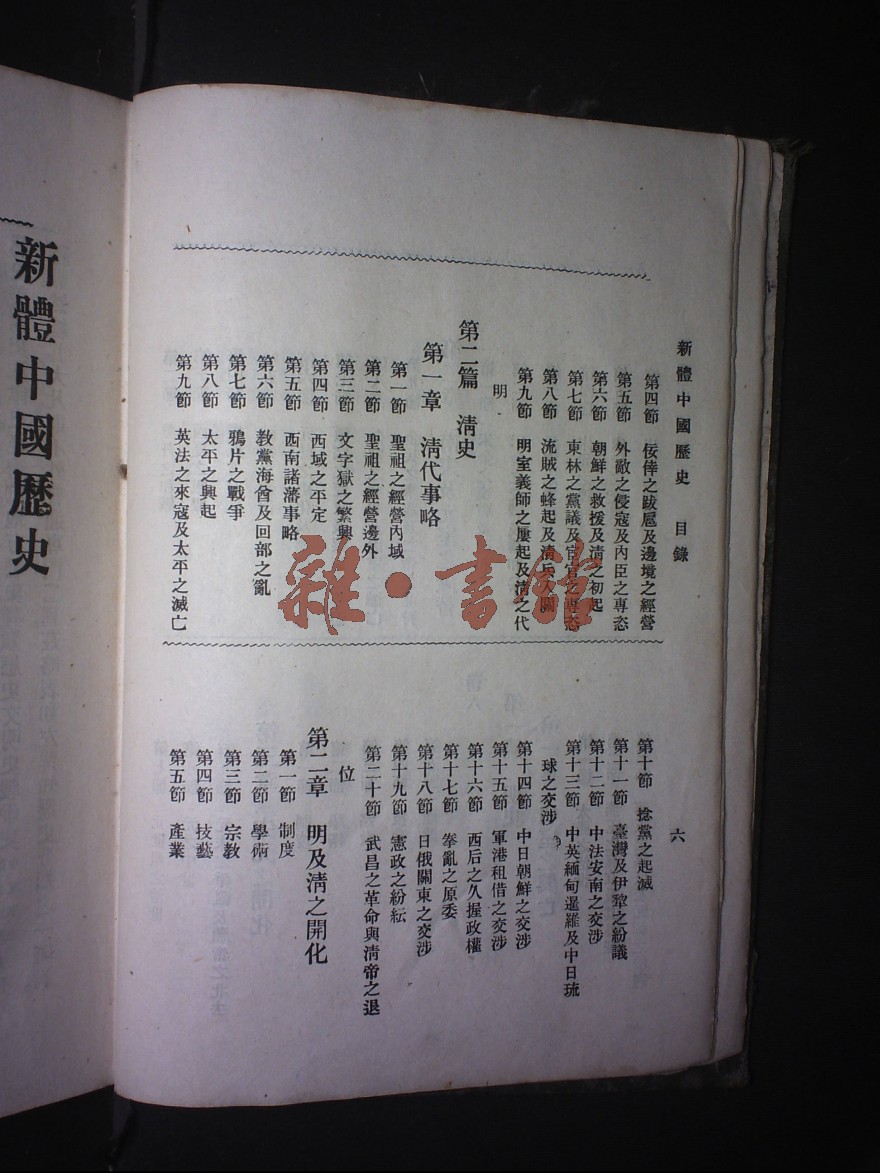 新體中國歷史　目錄
第四節　佞倖之跋扈及邊境之經營
第五節　外敵之侵寇及內臣之專恣
第六節　朝鮮之救援及清之初起
第七節　東林之黨議及宦官之專恣
第八節　流賊之蜂起及清兵入關
第九節　明室義師之屢起及清之代
明
第二篇　清史
第一章　清代事略
第一節　聖祖之經營內域
第二節　聖祖之經營邊外
第三節　文字獄之繁興
第四節　西域之平定
第五節　西南諸藩事略
第六節　教黨海會及回部之亂
第七節　鴉片之戰爭
第八節　太平之興起
第九節　英法之來寇及太平之滅亡
六
第十節　捻黨之起滅
第十一節　臺灣及伊犂之紛議
第十二節　中法安南之交涉
第十三節　中英緬甸暹羅及中日琉
球之交涉
第十四節　中日朝鮮之交涉
第十五節　軍港租借之交涉
第十六節　西后之久握政權
第十七節　拳亂之原委
第十八節　日俄關東之交涉
第十九節　憲政之紛紜
第二十節　武昌之革命與清帝之退
位
第二章　明及清之開化
第一節　制度
第二節　學術
第三節　宗教
第四節　技藝
第五節　產業
新體中國歷史
雜·書館